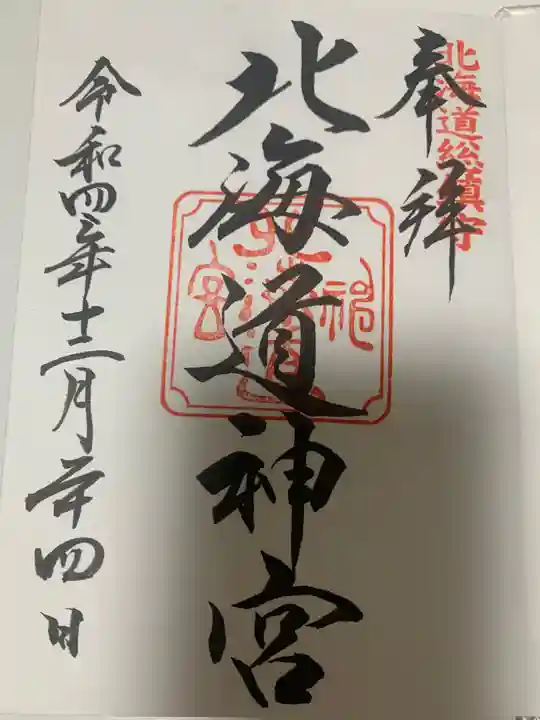 北海道総鎮守
奉拝
北海道神宮
北海道神宮
令和四年十二月廿四日